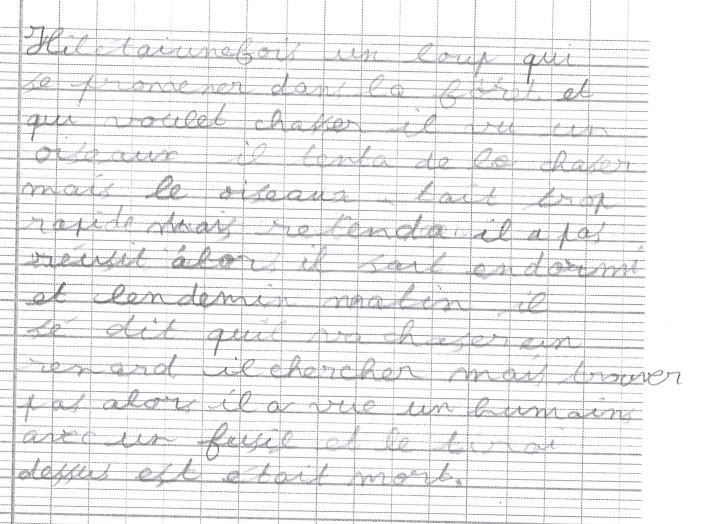 Hil étaiunefois un loup qui
se promener dans la forêt et
qui voulet chasser il vu un
oiseaux il tenta de le chaser
mais le oiseaux était trop
rapide mais retenda il a pas
réusit alors il sait endormi
et lendemin matin il
sé dit quil va chaser un
renard il chercher mais trouver
pas alors il a vue un humains
avec un fusil et le tirai
dessus est était mort.